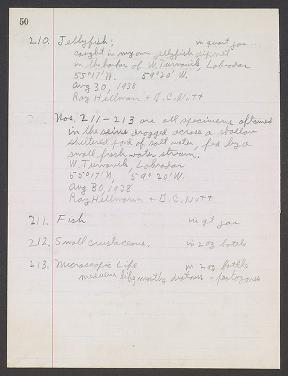 50
210. Jellyfish, in quart jar.
caught in my own jellyfish dipnet
in the harbor of W. Turnavik, Labrador
55°17'N. 59°20'W.
Aug 30, 1938
Ray Hillman + D.C. Nutt
Nos. 211-213 are all specimens obtained
in the seine dragged across a shallow
sheltered pool of salt water, fed by a
small fresh water stream.
W. Turnavik, Labrador
55°17'N, 59°20'W.
Aug 30, 1938
Ray Hillman + D.C. Nutt
211. Fish in qt jar
212. Small crustaceans. in 2oz bottle
213. Microscopic Life in 2oz bottle